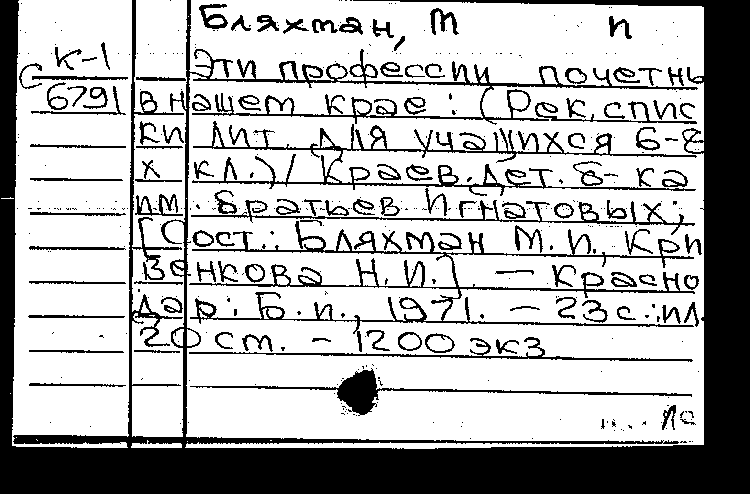 Бляхман, М П
К-1
С 6791
Эти профессии почетны
в нашем крае: (Рек. спис
ки лит. для учащихся 6-8
х кл.)/ Краев. дет. б-ка
им. братьев Игнатовых;
[Сост.: Бляхман М.П., Кри
венкова Н.И.] — Красно
дар: Б.и., 1971. — 23 с.: ил.
20 см. — 1200 экз